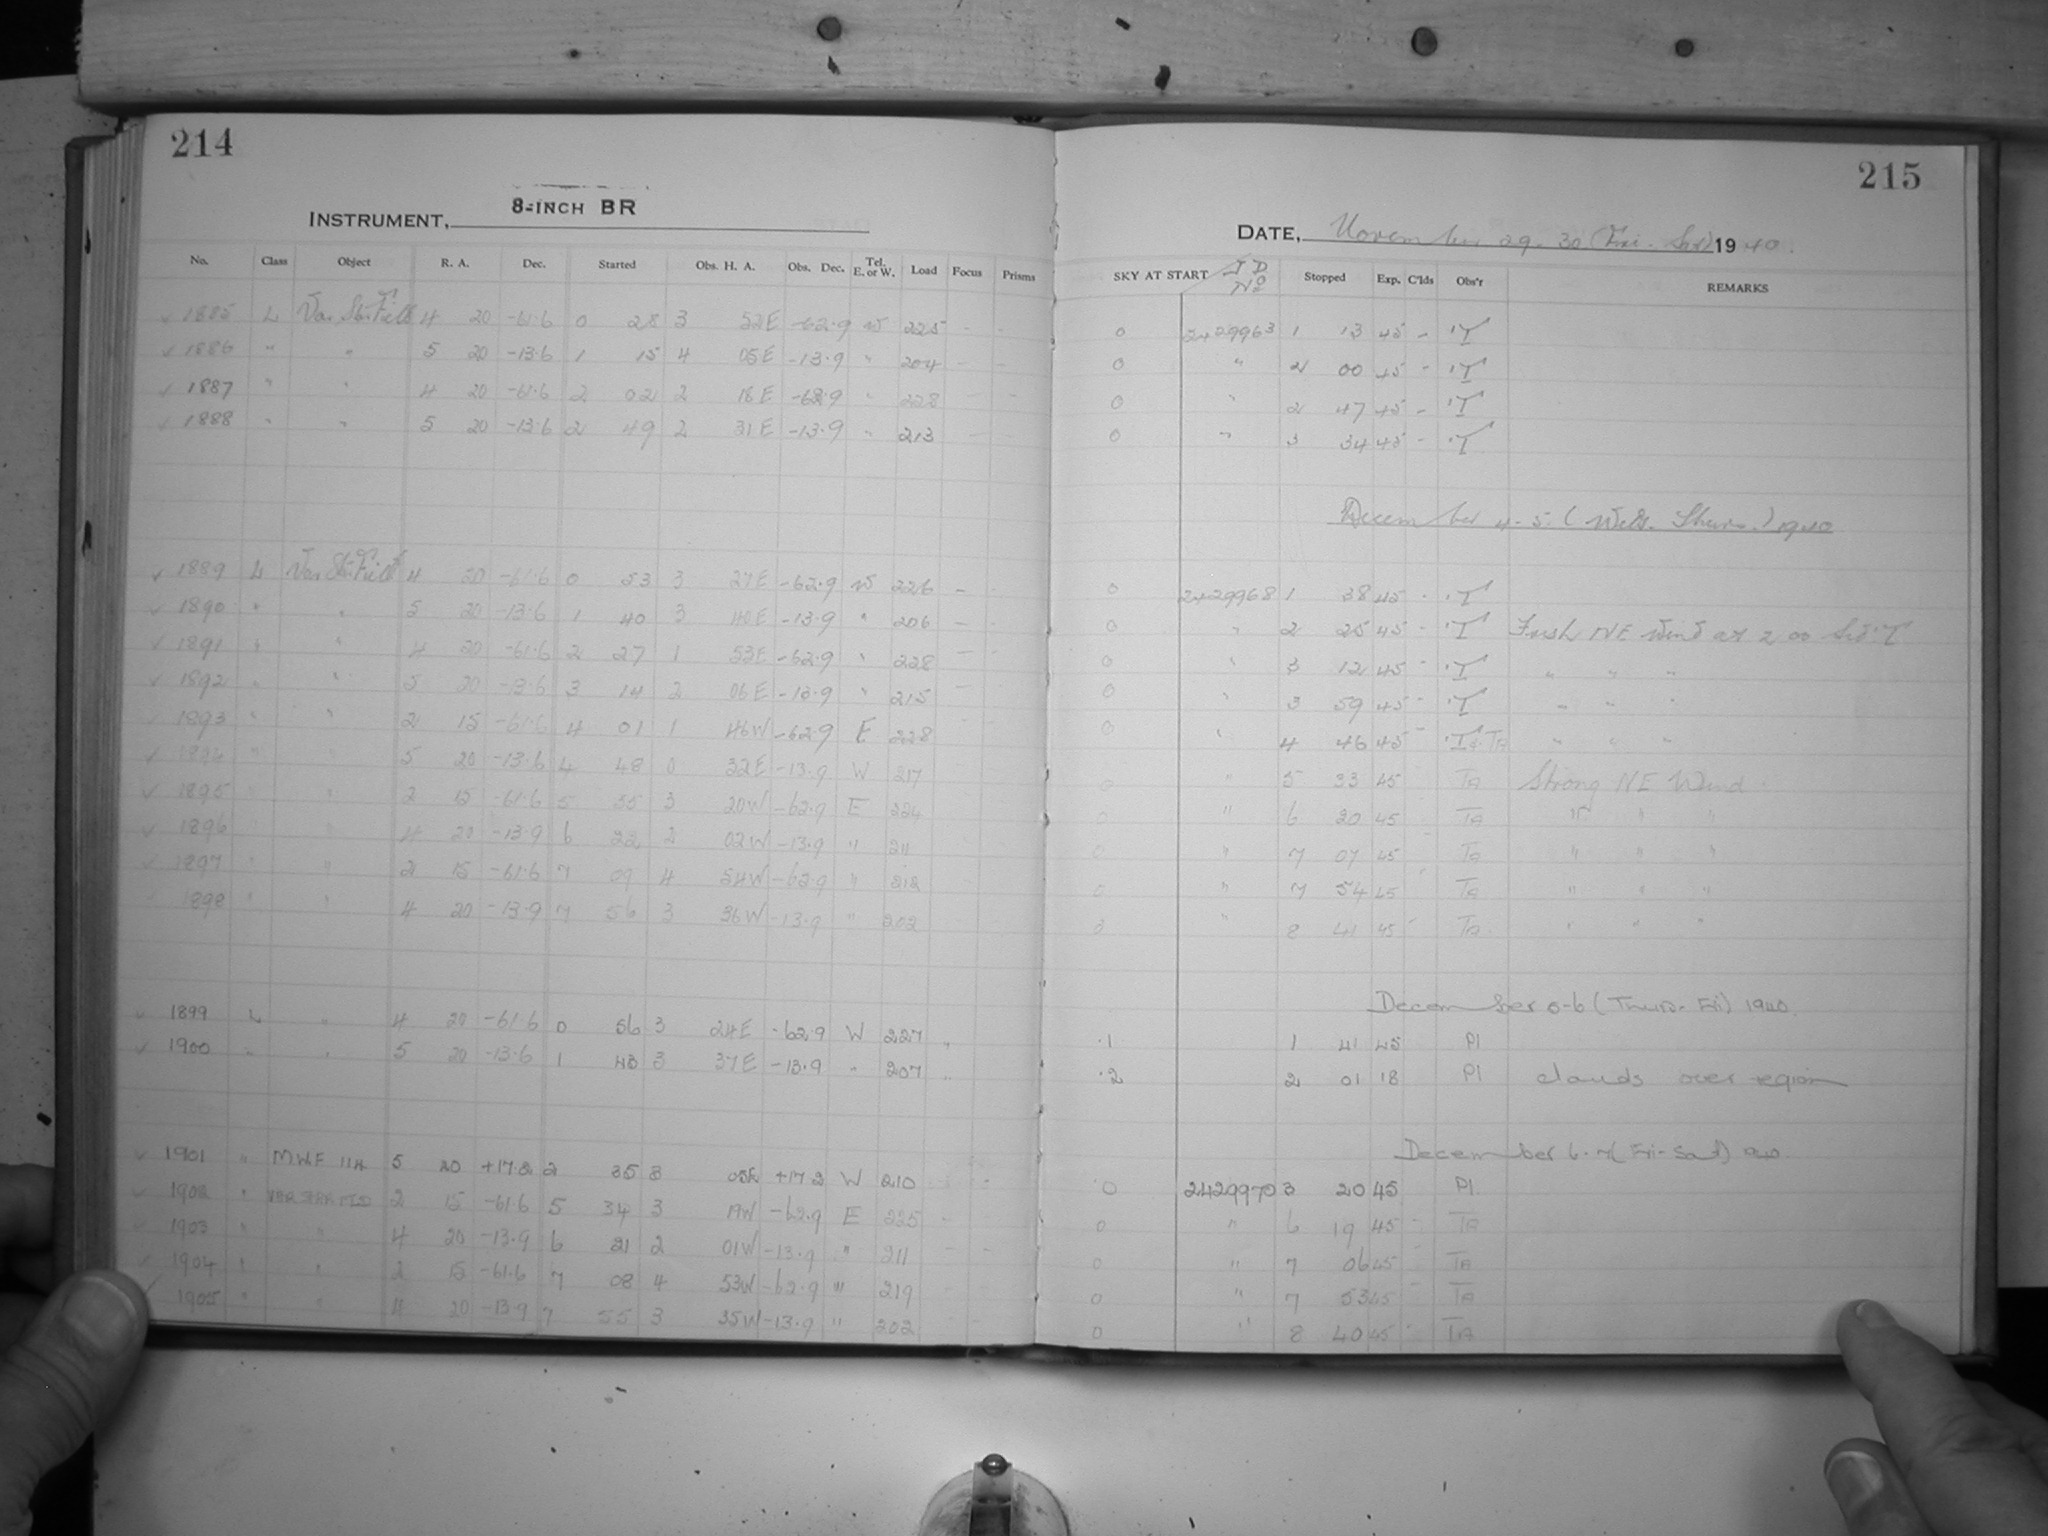 214
215
INSTRUMENT, 8-INCH BR
DATE, November 29-30 (Fri-Sat) 1940.
No. Class Object R. A. Dec. Started Obs. H. A. Obs. Dec. Tel. E. or W. Load Focus Prisms SKY AT START J D No Stopped Exp. C'lds Obs'r REMARKS
1885 L Var. Sta. Field 4 20 -61.6 0 28 3 52E -62.9 W 225 - - 0 2429963 1 13 45 - 'T
1886 " " 5 20 -13.6 1 15 4 05E -13.9 " 204 - - 0 " 2 00 45 - 'T
1887 " " 4 20 -61.6 2 02 2 18E -62.9 " 228 - - 0 " 2 47 45 - 'T
1888 " " 5 20 -13.6 2 49 2 31E -13.9 " 213 - - 0 " 3 34 45 - 'T
December 4-5. (Weds. Thurs.) 1940
1889 L Var. Sta. Field 4 20 -61.6 0 53 3 27E -62.9 W 226 - - 0 2429968 1 38 45 - 'T
1890 " " 5 20 -13.6 1 40 3 40E -13.9 " 206 - - 0 " 2 25 45 - 'T Fresh NE Wind at 2 00
1891 " " 4 20 -61.6 2 27 1 53E -62.9 " 228 - - 0 " 3 12 45 - 'T " " "
1892 " " 5 20 -13.6 3 14 2 06E -13.9 " 215 - - 0 " 3 59 45 - 'T " " "
1893 " " 2 15 -61.6 4 01 1 46W -62.9 E 228 0 " 4 46 45 - 'T & TA " " "
1894 " " 5 20 -13.6 4 48 0 32E -13.9 W 217 0 " 5 33 45 TA Strong NE Wind
1895 " " 2 15 -61.6 5 35 3 20W -62.9 E 224 0 " 6 20 45 TA " " "
1896 " " 4 20 -13.9 6 22 2 02W -13.9 " 211 0 " 7 07 45 TA " " "
1897 " " 2 15 -61.6 7 09 4 54W -62.9 " 218 0 " 7 54 45 TA " " "
1898 " " 4 20 -13.9 7 56 3 36W -13.9 " 202 0 " 8 41 45 TA " " "
December 5-6 (Thurs-Fri) 1940
1899 L " 4 20 -61.6 0 56 3 24E -62.9 W 227 " .1 1 41 45 PI
1900 " " 5 20 -13.6 1 43 3 37E -13.9 " 207 " .2 2 01 18 PI clouds over region
December 6-7 (Fri-Sat) 1940
1901 " MWF 114 5 20 +17.2 2 35 3 05E +17.2 W 210 - - 0 2429970 3 20 45 PI
1902 " VAR STAR FIELD 2 15 -61.6 5 34 3 19W -62.9 E 225 - 0 " 6 19 45 - TA
1903 " " 4 20 -13.9 6 21 2 01W -13.9 " 211 - - 0 " 7 06 45 - TA
1904 " " 2 15 -61.6 7 08 4 53W -62.9 " 219 - - 0 " 7 53 45 - TA
1905 " " 4 20 -13.9 7 55 3 35W -13.9 " 202 - - 0 " 8 40 45 - TA